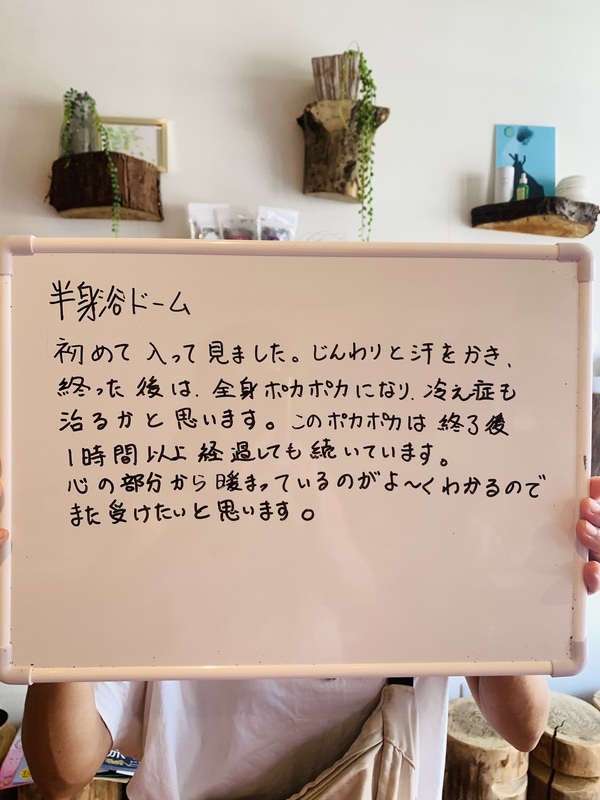 半身浴ドーム
初めて入って見ました。じんわりと汗をかき、
終った後は、全身ポカポカになり、冷え症も
治るかと思います。このポカポカは終了後
1時間以上経過しても続いています。
心の部分から暖まっているのがよ〜くわかるので
また受けたいと思います。